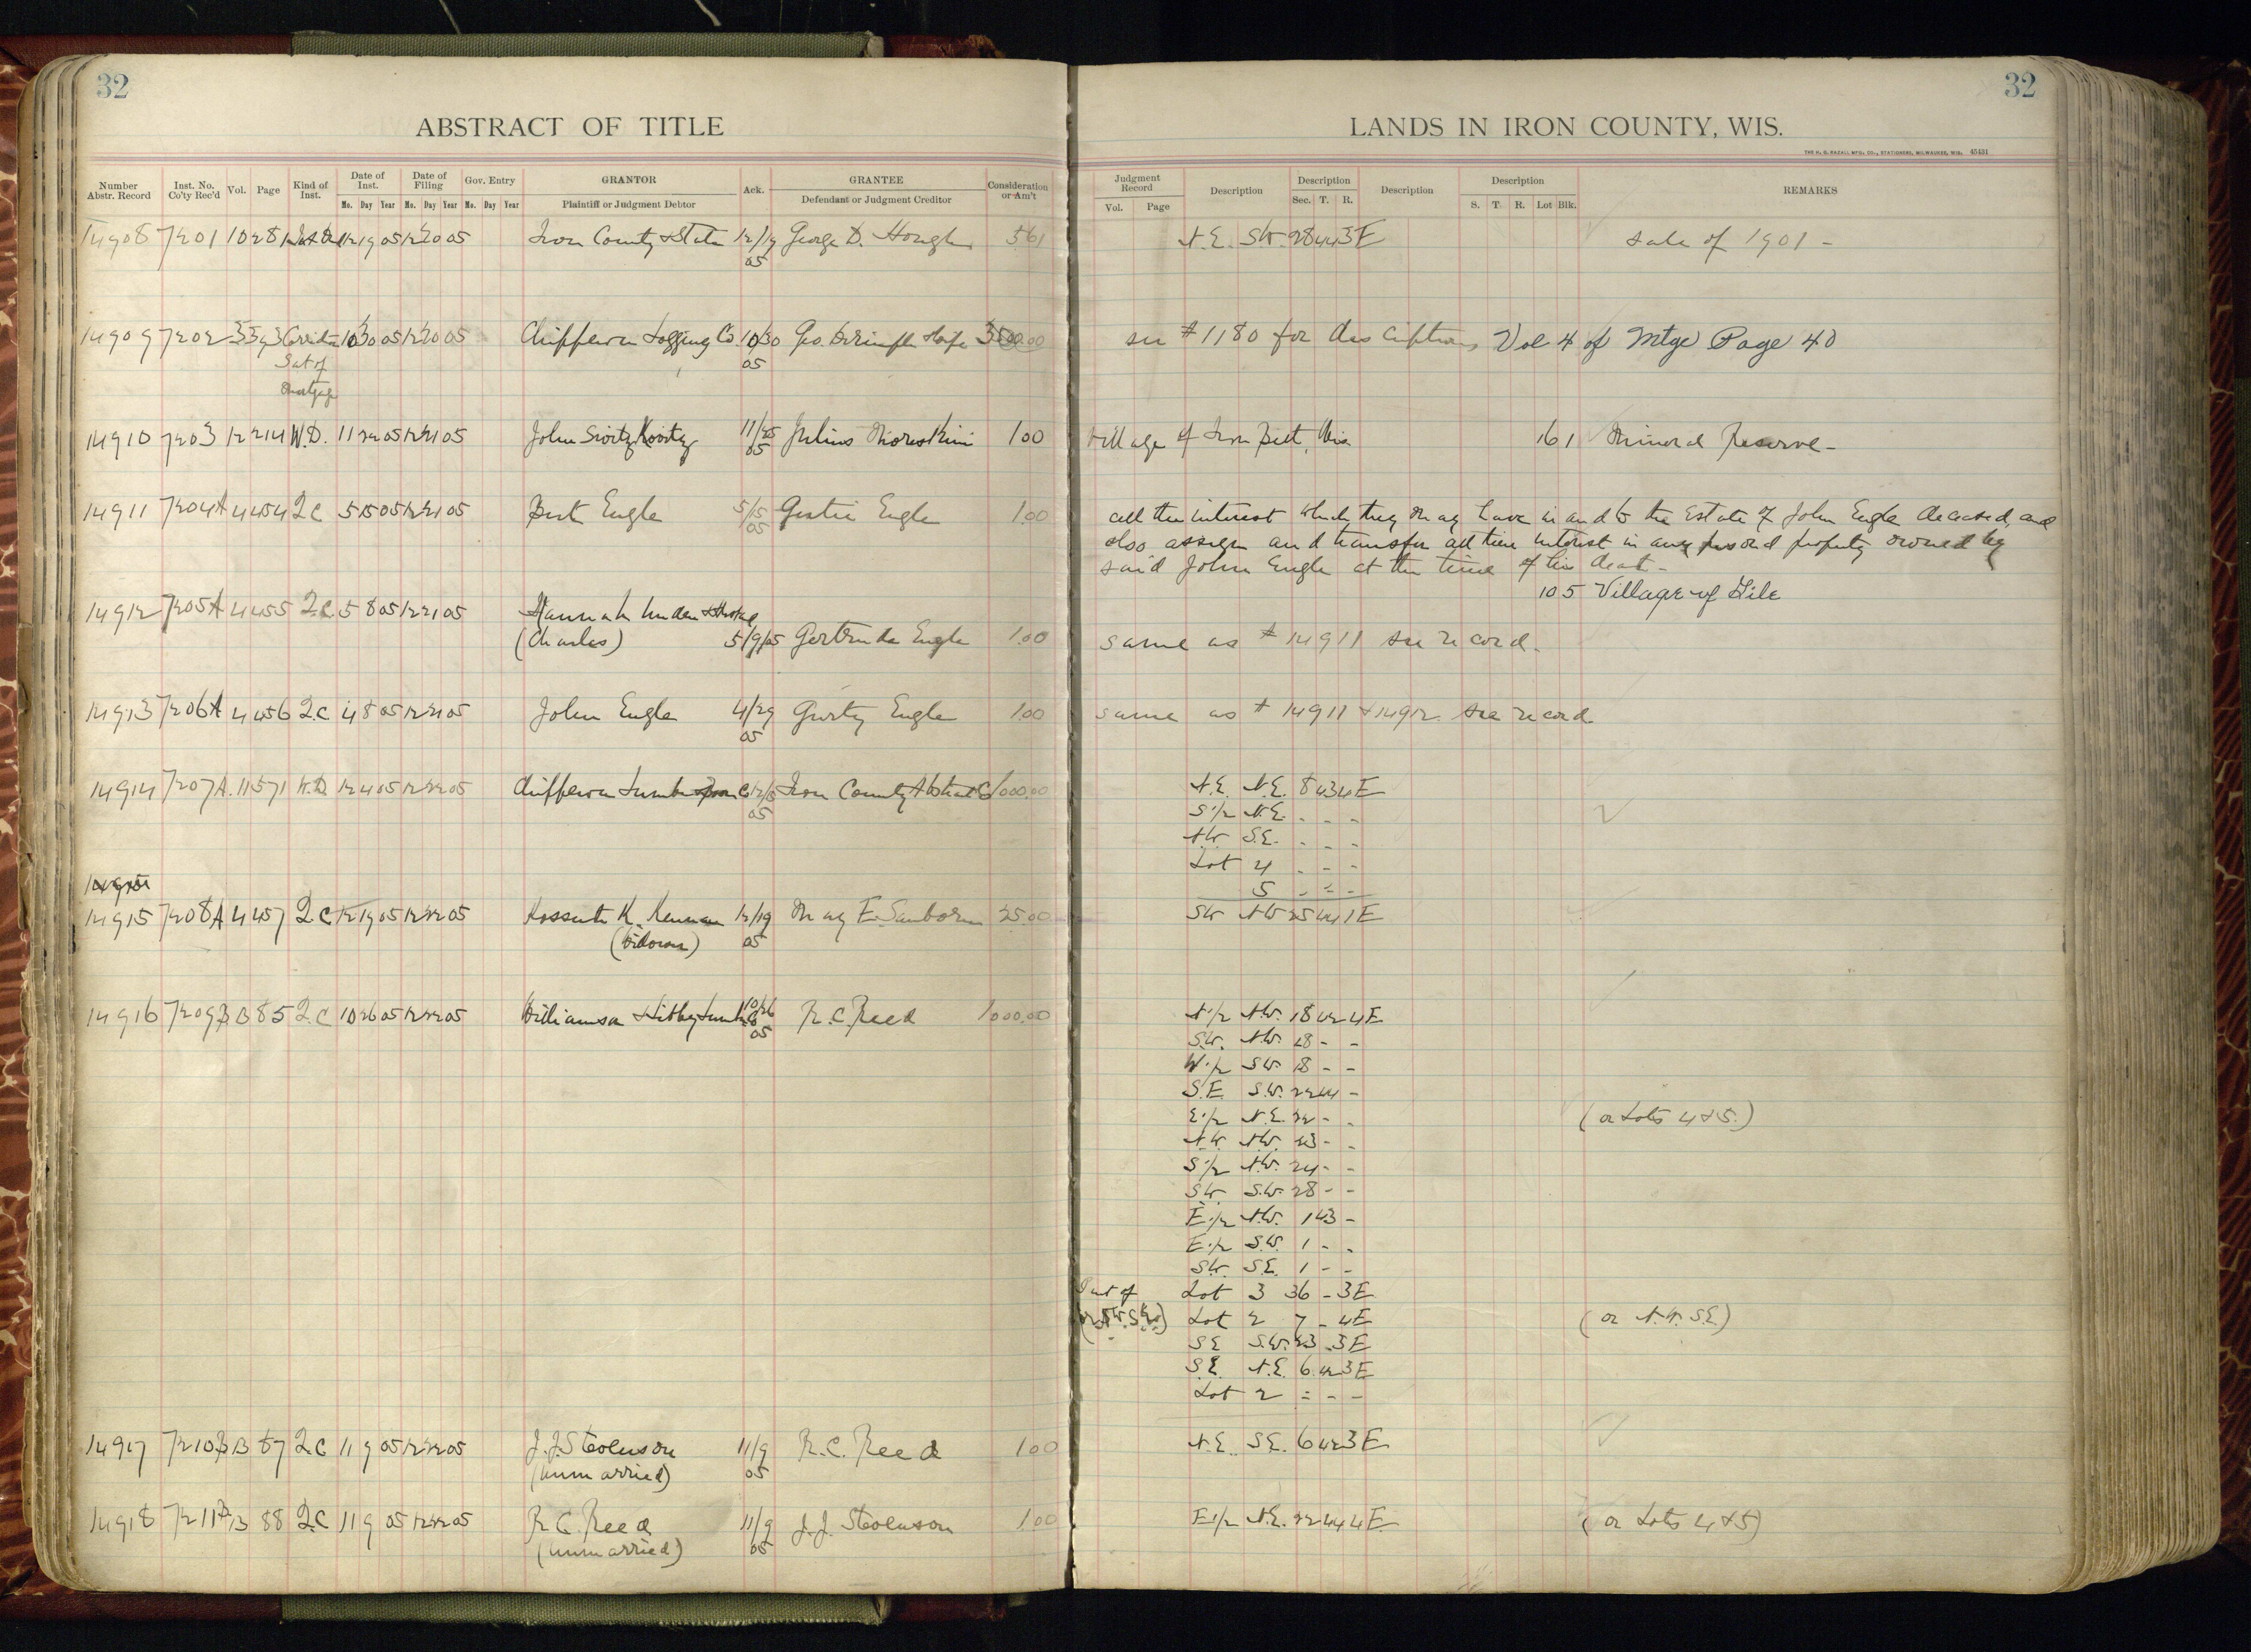 32
ABSTRACT OF TITLE
Number Abstr. Record | Inst. No. Co'ty Rec'd | Vol. | Page | Kind of Inst. | Date of Inst. Mo. Day Year | Date of Filing Mo. Day Year | Gov. Entry Mo. Day Year | GRANTOR Plaintiff or Judgment Debtor | Ack. | GRANTEE Defendant or Judgment Creditor | Consideration or Am't
14908 7201 10 281 12 19 05 12 20 05 Iron County & State 12/19 George D. 5 61
05
14909 7202 10 30 05 12 20 05 Logging Co. 10/30 Geo.
Sat of 05
Mortgage
14910 7203 12 214 W.D. 11 22 05 12 21 05 John 11/25 Julius 1 00
05
14911 7204 A 4 454 Q.C 5 15 05 12 21 05 Bert Engle 5/15 Gertie Engle 1.00
05
14912 7205 A 4 455 Q.C. 5 8 05 12 21 05 Hannah
(Charles) 5/9/05 Gertrude Engle 1.00
14913 7206 A 4 456 Q.C 4 8 05 12 21 05 John Engle 4/29 Engle 1.00
05
14914 7207 A. 11 571 W.D. 12 4 05 12 22 05 12/5 Iron County Abstract Co 1000.00
05
14915 7208 A 4 457 Q.C 12 19 05 12 22 05 Kossuth K. Kennan 12/19 May E. Sanborn 25.00
(Widower) 05
14916 7209 B 13 85 Q.C 10 26 05 12 22 05 Williamson & Libbey 10/26 R.C. Reed 1000.00
05
14917 7210 B 13 87 Q.C 11 9 05 12 22 05 J.J. Stevenson 11/9 R.C. Reed 1.00
(unmarried) 05
14918 7211 B 13 88 Q.C 11 9 05 12 22 05 R.C. Reed 11/9 J.J. Stevenson 1.00
(unmarried) 05
32
LANDS IN IRON COUNTY, WIS.
THE H. G. RAZALL MFG. CO., STATIONERS, MILWAUKEE, WIS. 45431
Judgment Record Vol. Page | Description | Description Sec. T. R. | Description | Description S. T. R. Lot Blk. | REMARKS
N.E. S.W. 28 44 3E sale of 1901 -
see #1180 for description, Vol 4 of Mtge Page 40
Village of Iron Belt, Wis 16 1 Mineral Reserve -
all the interest which they may have in and to the Estate of John Engle deceased, and
also assign and transfer all their interest in any personal property owned by
said John Engle at the time of his death -
10 5 Village of Gile
same as #14911 see record.
same as #14911 & 14912. see record
N.E. N.E. 8 43 4E
S 1/2 N.E. - - -
N.W. S.E. - - -
Lot 4 - - -
5 - - -
SW NW 25 44 1E
N 1/2 N.W. 18 42 4E
S.W. N.W. 18 - -
W 1/2 S.W. 18 - -
S.E. S.W. 22 44 -
E 1/2 N.E. 22 - - (or Lots 4 & 5.)
N.W. N.W. 23 - -
S 1/2 N.W. 24 - -
S.W. S.W. 28 - -
E 1/2 N.W. 1 43 -
E 1/2 S.W. 1 - -
S.W. S.E. 1 - -
Lot 3 36 - 3E
Lot 2 7 - 4E (or N.W. S.E.)
SE S.W. 23 - 3E
S.E. N.E. 6 42 3E
Lot 2 = - -
N.E. S.E. 6 42 3E
E 1/2 N.E. 22 44 4E (or Lots 4 & 5)